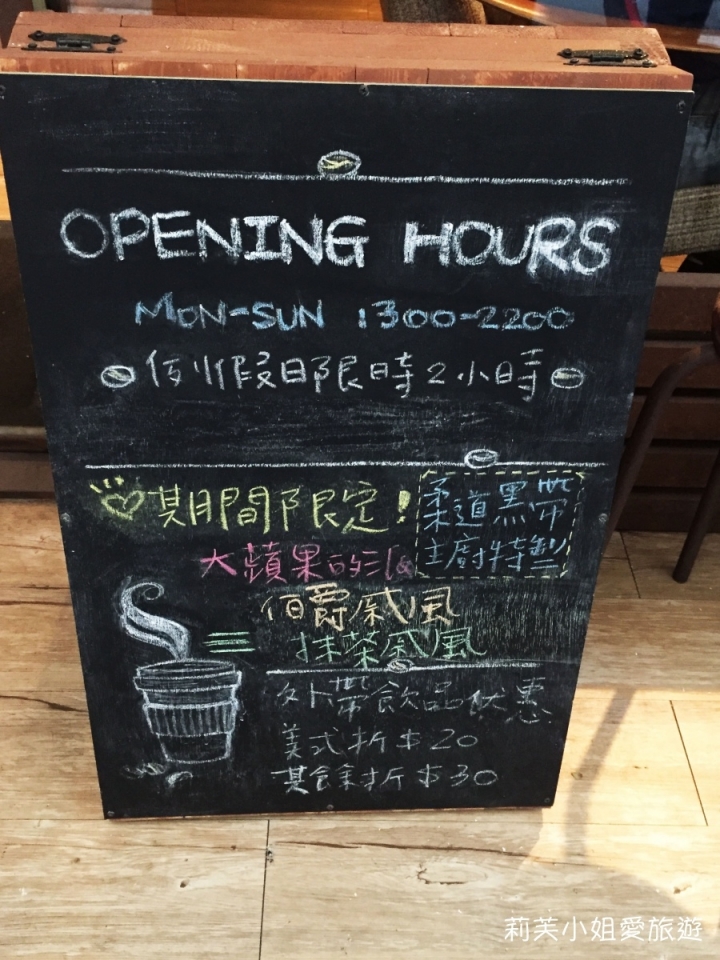 OPENING HOURS
MON-SUN 1300-2200
例假日限時2小時
期間限定!
柔道黑帶
主廚特製
大蘋果的派
伯爵戚風
抹茶戚風
外帶飲品優惠
美式折$20
其餘折$30
莉芙小姐愛旅遊